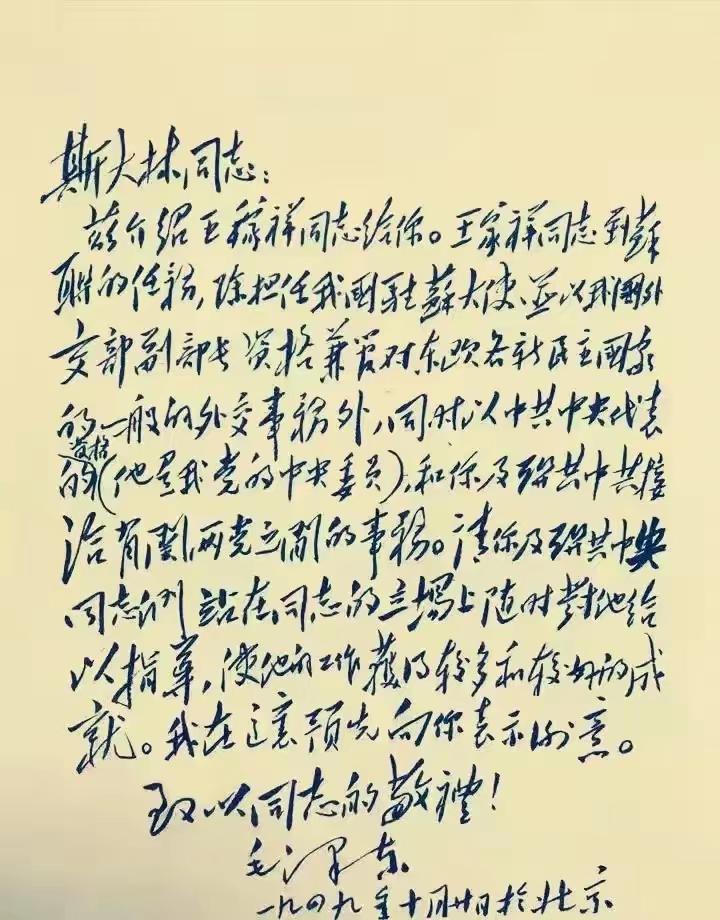 斯大林同志：
兹介绍王稼祥同志给你。王家祥同志到蘇
联的任務，除担任我國駐蘇大使、並以我國外
交部副部长資格兼管对东欧各新民主國家
的一般的外交事務外，同时以中共中央代表
資格
的(他是我党的中央委員)，和你及联共中共接
洽有関両党之间的事務。請你及联共中央
同志们站在同志的立場上随时對他给
以指导，使他的工作獲得较多和较好的成
就。我在這裏預先向你表示谢意。
致以同志的敬禮！
毛澤东
一九四九年十月廿日於北京